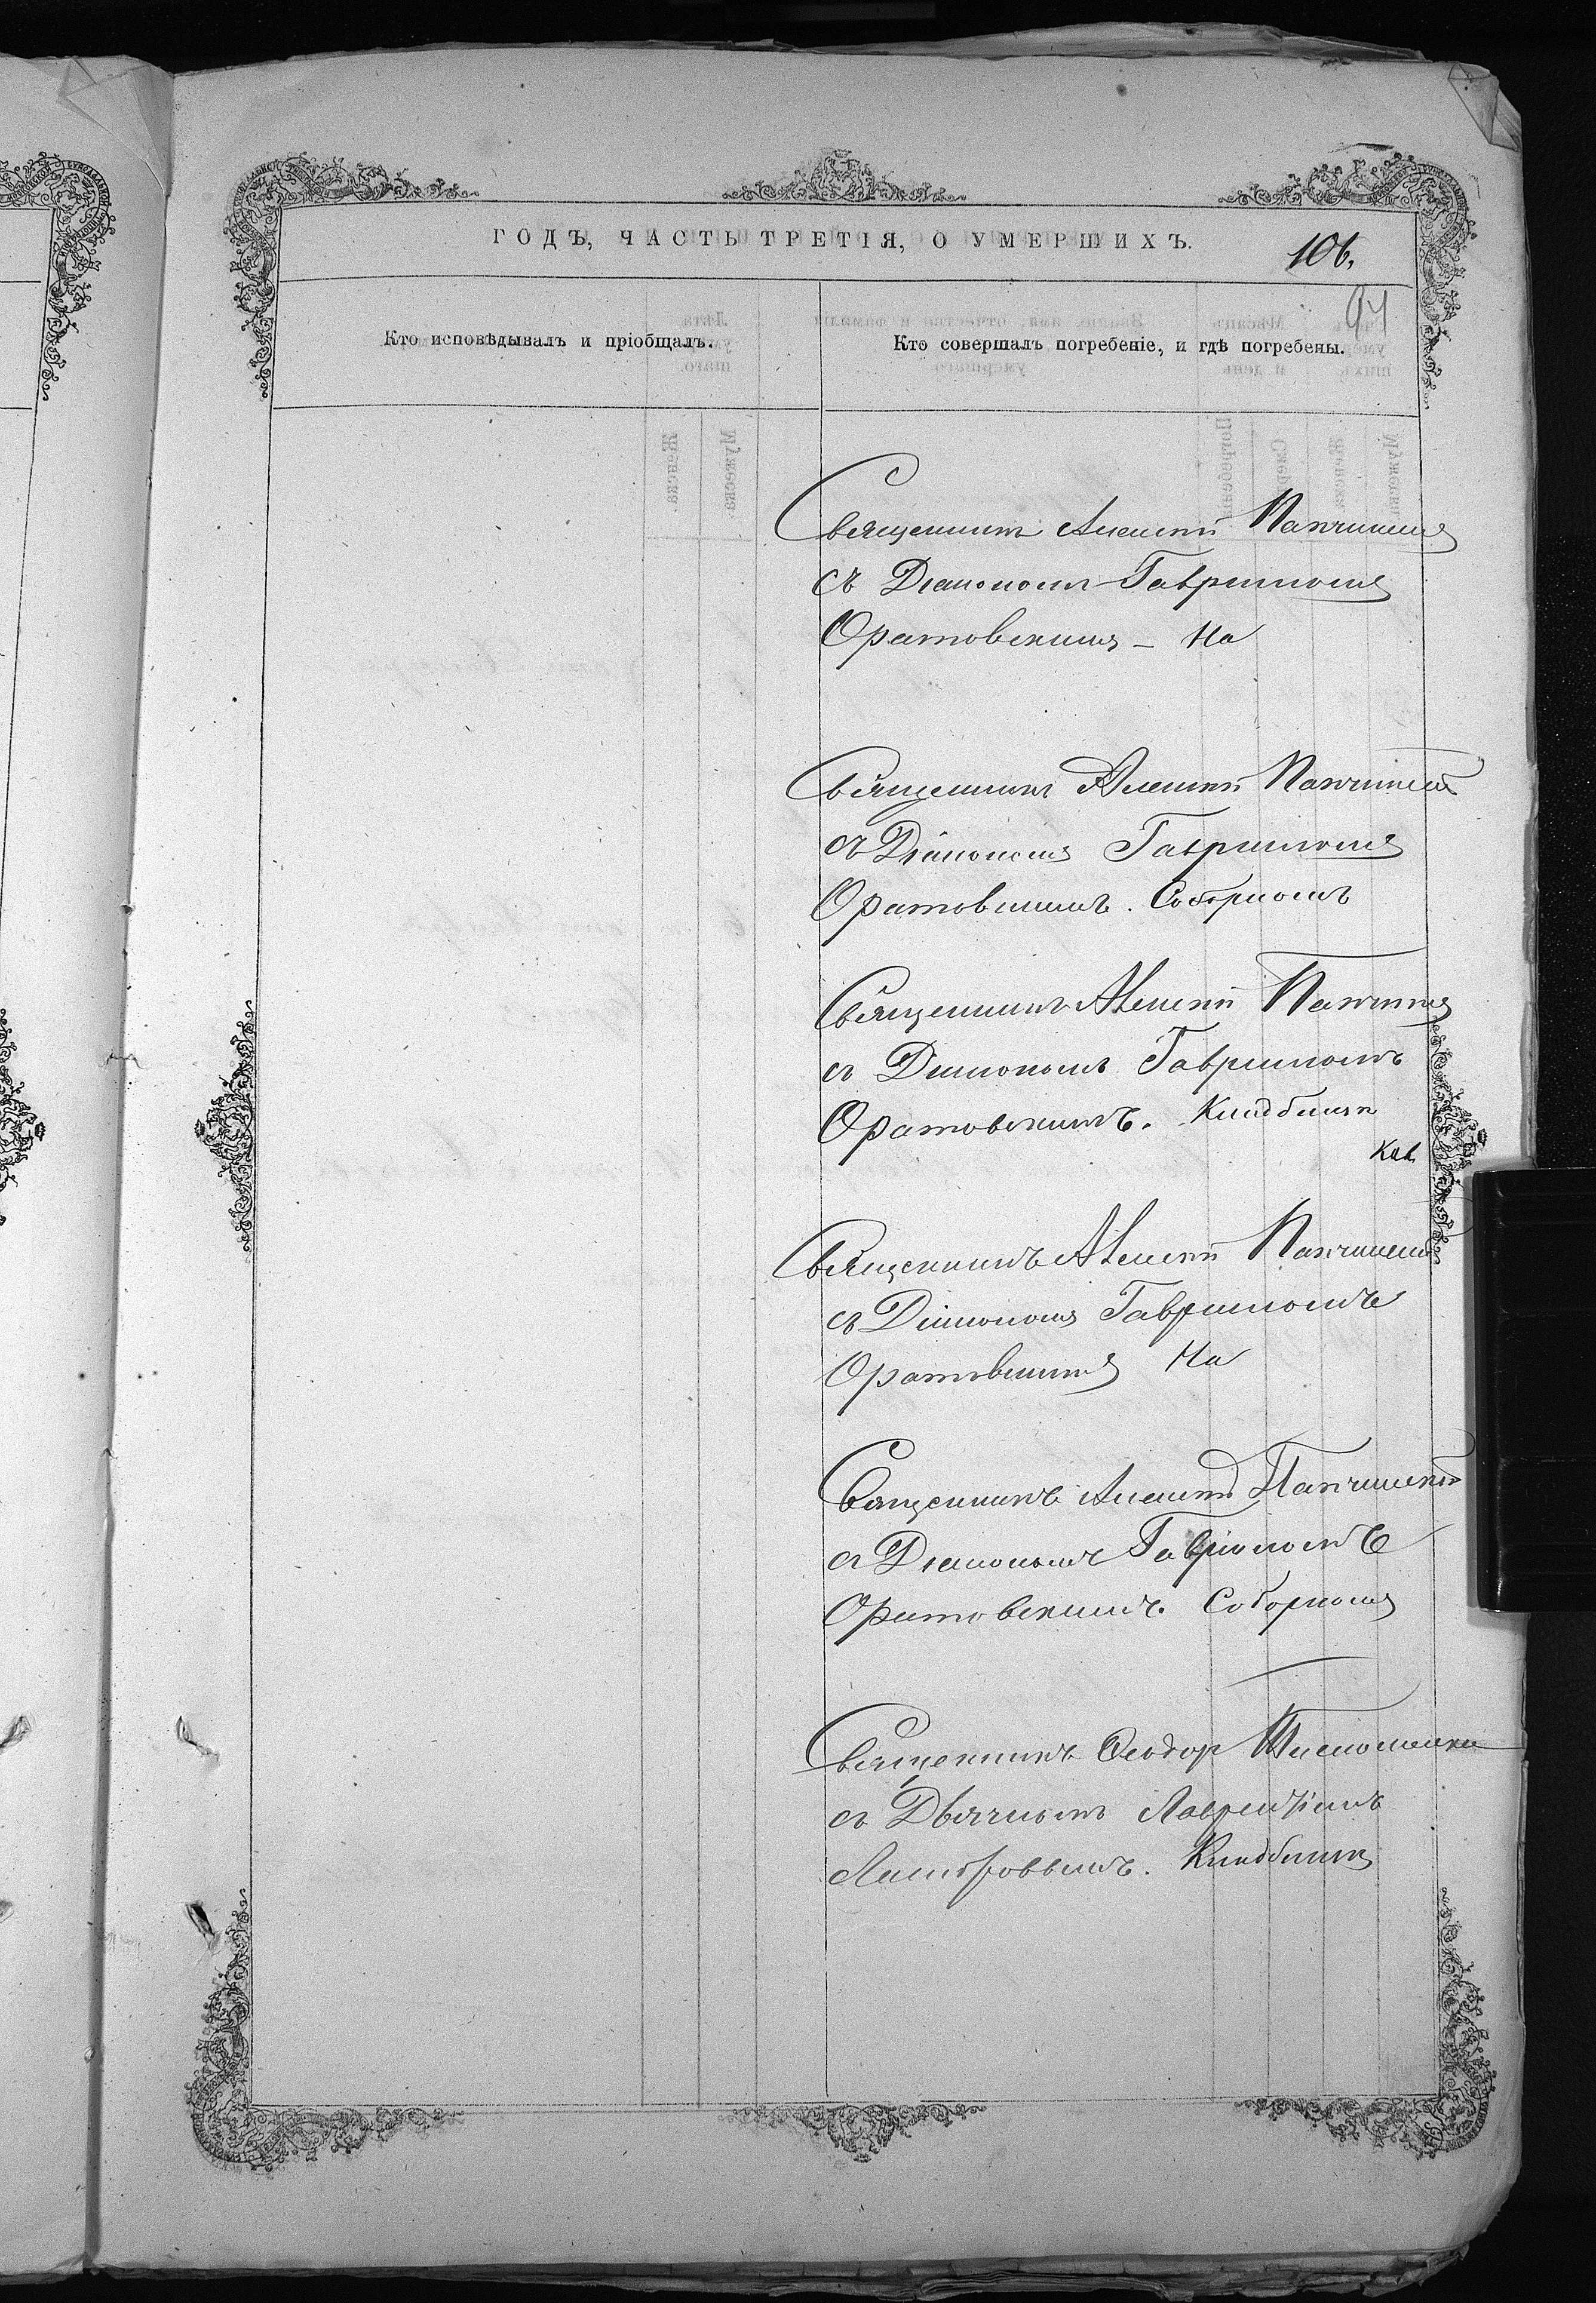 ГОДЪ, ЧАСТЬ ТРЕТІЯ, О УМЕРШИХЪ.
106.
94
Кто исповѣдывалъ и пріобщалъ.
Кто совершалъ погребеніе, и гдѣ погребены.
Священникъ Алексій
съ Діакономъ Гавріиломъ
Оратовскимъ – На
Священникъ Алексій
съ Діакономъ Гавріиломъ
Оратовскимъ. Соборномъ
Священникъ Алексій
съ Діакономъ Гавріиломъ
Оратовскимъ. Кладбищѣ
Священникъ Алексій
съ Діакономъ Гавріиломъ
Оратовскимъ На
Священникъ Алексій
съ Діакономъ Гавріиломъ
Оратовскимъ. Соборномъ
Священникъ Ѳеодор
съ Дьячкомъ Лаврентіемъ
Кладбищѣ